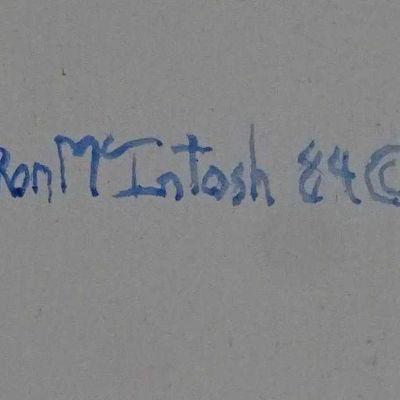 Ron McIntosh 84 ©